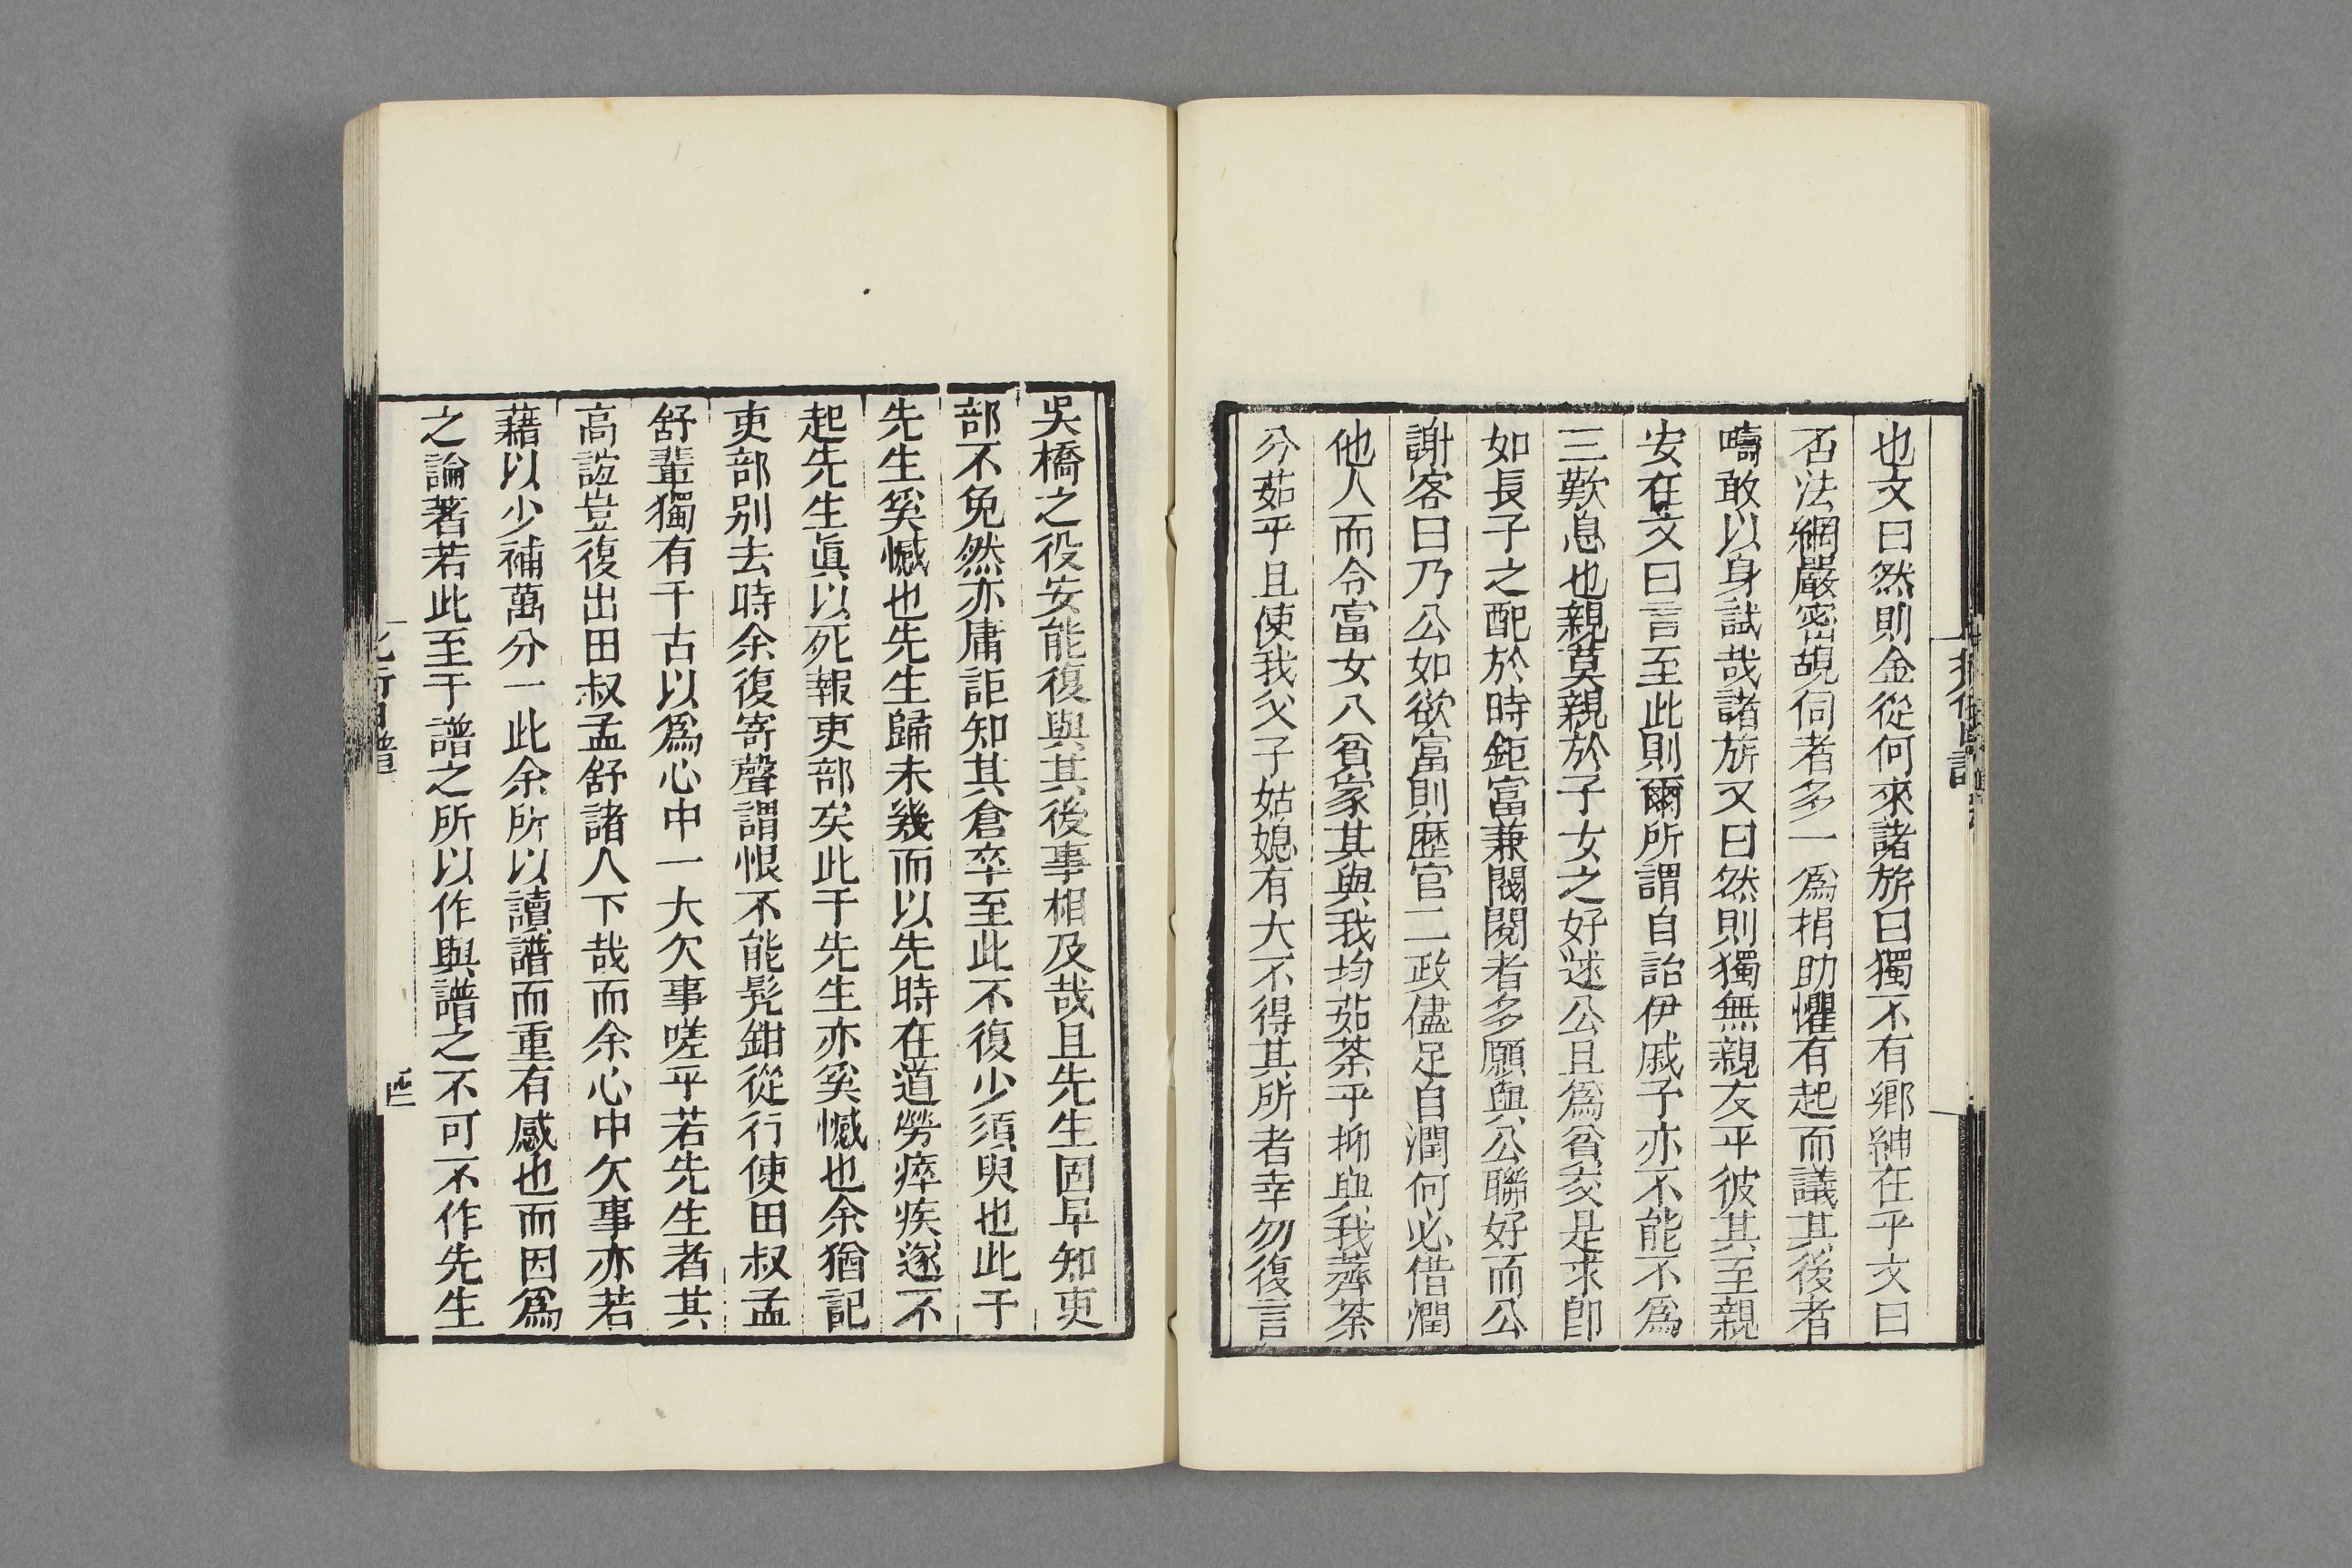 也文曰然則金從何來諸旂曰獨不有鄉紳在乎文曰
否法網嚴密覘伺者多一爲捐助懼有起而議其後者
疇敢以身試哉諸旂又曰然則獨無親友乎彼其至親
安在文曰言至此則爾所謂自詒伊戚子亦不能不爲
三歎息也親莫親於子女之好逑公且爲貧交是求卽
如長子之配於時鉅富兼閥閱者多願與公聯好而公
謝客曰乃公如欲富則歷官二政儘足自潤何必借潤
他人而令富女入貧家其與我均茹荼乎抑與我薺荼
分茹乎且使我父子姑媳有大不得其所者幸勿復言
吳橋之役安能復與其後事相及哉且先生固早知吏
部不免然亦庸詎知其倉卒至此不復少須臾也此于
先生奚憾也先生歸未幾而以先時在道勞瘁疾遂不
起先生眞以死報吏部矣此于先生亦奚憾也余猶記
吏部别去時余復寄聲謂恨不能髡鉗從行使田叔孟
舒輩獨有千古以爲心中一大欠事嗟乎若先生者其
高誼豈復出田叔孟舒諸人下哉而余心中欠事亦若
藉以少補萬分一此余所以讀譜而重有感也而因爲
之論著若此至于譜之所以作與譜之不可不作先生